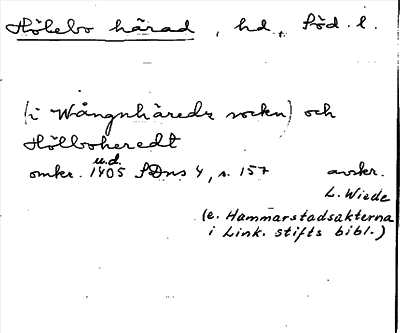 Hölebo härad, hd., Söd. l.
(i Wångnhäredz sockn) och
Hölboheredt
u.d.
omkr. 1405 SDns 4, s. 157 avskr.
L. Wiede
(e. Hammarstadsakterna
i Link. stifts bibl.)